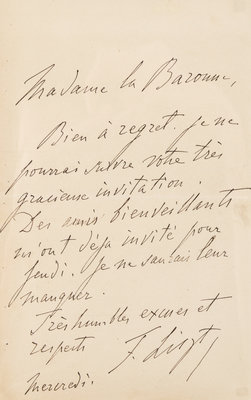 Madame la Baronne,
Bien à regret je ne
pourrai suivre votre très
gracieuse invitation.
Des amis bienveillants
m'ont déjà invité pour
jeudi. Je ne saurais leur
manquer.
Très humbles excuses et
respects
F. Liszt
Mercredi.